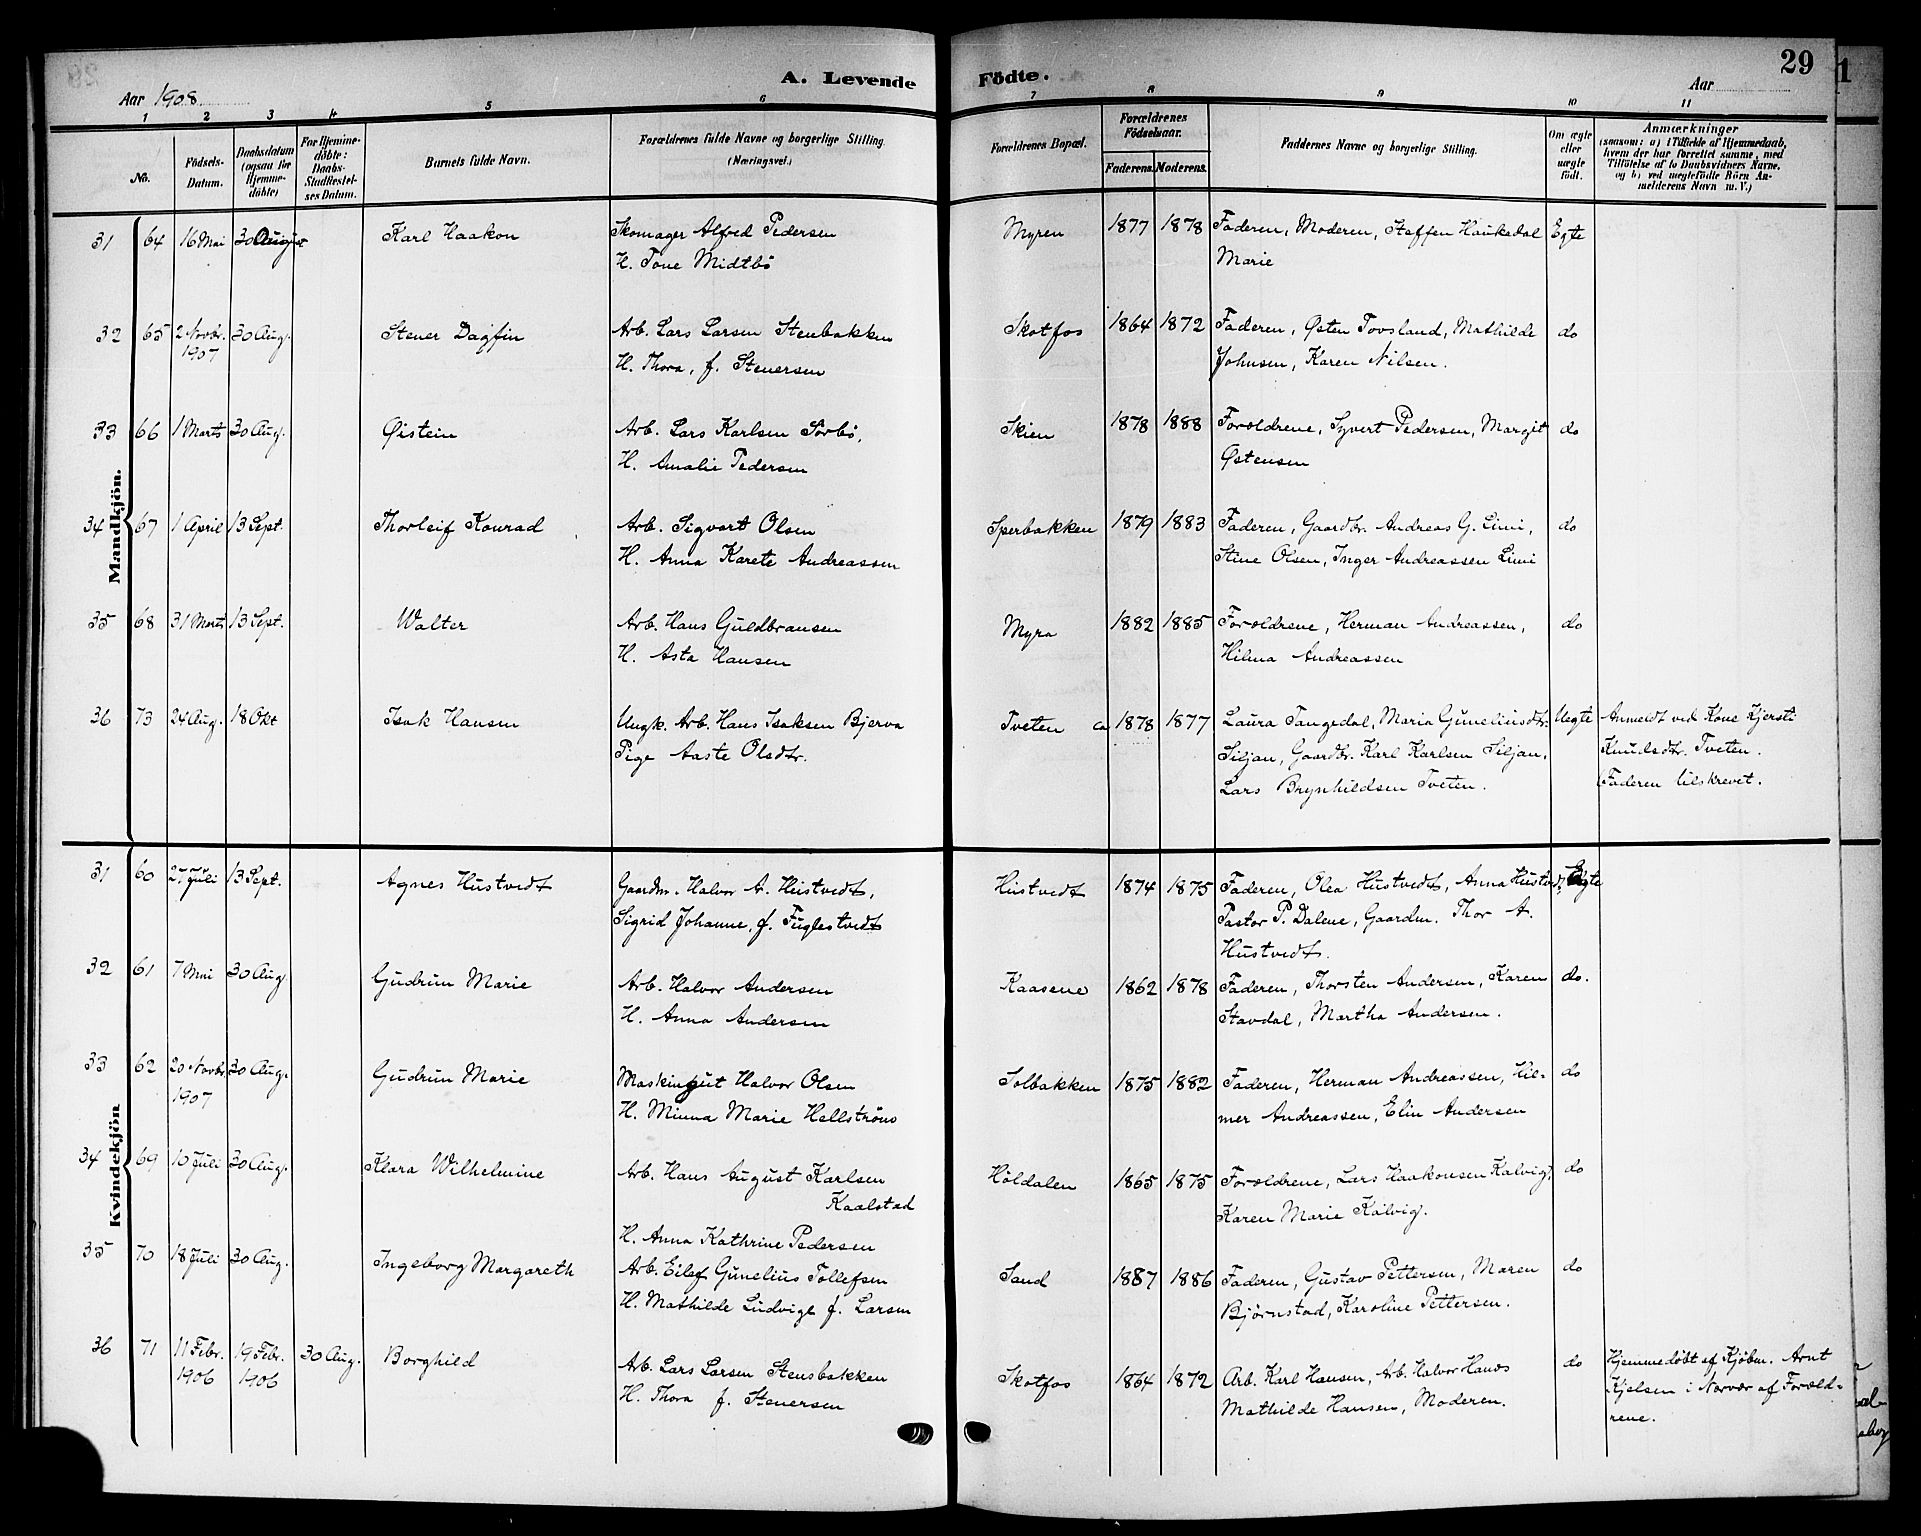 A. Levende Födte.
29
Aar 1908
Aar
1 2 3 4 5 6 7 8 9 10 11
No.
Födsels-Datum.
Daabsdatum (ogsaa for Hjemmedöbte)
For Hjemmedöbte: Daabs-Stadfæstelses Datum.
Barnets fulde Navn.
Forældrenes fulde Navne og borgerlige Stilling (Næringsvei.)
Forældrenes Bopæl.
Forældrenes Födselsaar.
Faderens. Moderens.
Faddernes Navne og borgerlige Stilling.
Om ægte eller uægte födt.
Anmærkninger
(saasom: a) i Tilfælde af Hjemmedaab, hvem der har forrettet samme, med Tilföielse af to Daabsvidners Navne, og b) ved uægtefödte Börn Anmelderens Navn m. V.)
Mandkjön.
31 64 16 Mai 30 August Karl Haakon Skomager Alfred Pedersen Myren 1877 1878 Faderen, Moderen, Staffen Haukedal Egte
H. Tone Midtbö Marie
32 65 2 Novbr. 1907 30 Aug. Stener Dagfin Arb. Lars Larsen Stenbakken Skotfos 1864 1872 Faderen, Østen Tovsland, Mathilde do
H. Thora, f. Stenersen Johnsen, Karen Nilsen.
33 66 1 Marts 30 Aug. Øistein Arb. Lars Karlsen Sørbø, Skien 1878 1888 Forældrene, Syvert Pedersen, Margit do
H. Amalie Pedersen Østensen
34 67 1 April 13 Sept. Thorleif Konrad Arb. Sigvart Olsen Sperbakken 1879 1883 Faderen, Gaardbr. Andreas G. Limi, do
H. Anna Karete Andreassen Stine Olsen, Inger Andreassen Limi
35 68 31 Marts 13 Sept. Walter Arb. Hans Guldbransen Myra 1882 1885 Forældrene, Herman Andreassen, do
H. Asta Hansen Hilma Andreassen
36 73 24 Aug. 18 Okt Isak Hansen Ungk. Arb. Hans Isaksen Bjerva Tveten ca 1878 1877 Laura Tangedal, Maria Guneliusdtr. Uegte Anmeldt ved Kone Kjersti
Pige Aaste Olsdtr. Siljan, Gaardbr. Karl Karlsen Siljan, Knudsdtr. Tveten.
Lars Brynhildsen Tveten. Faderen tilskrevet.
Kvindekjön
31 60 27 Juli 13 Sept. Agnes Hustvedt Gaardm. Halvor A. Hustvedt, Hustvedt 1874 1875 Faderen, Olea Hustvedt, Anna Hustvedt, Egte
Sigrid Johanne, f. Fuglestvedt Pastor P. Dalene, Gaardm. Thor A.
Hustvedt.
32 61 7 Mai 30 Aug. Gudrun Marie Arb. Halvor Andersen Kaasene 1862 1878 Faderen, Thorsten Andersen, Karen do.
H. Anna Andersen Stavdal, Martha Andersen.
33 62 20 Novbr. 1907 30 Aug. Gudrun Marie Maskingut Halvor Olsen Solbakken 1875 1882 Faderen, Herman Andreassen, Hil- do
H. Minna Marie Hellströms mer Andreassen, Elin Andersen
34 69 10 Juli 30 Aug. Klara Wilhelmine Arb. Hans August Karlsen Høldalen 1865 1875 Forældrene, Lars Haakonsen Kalvig, do
Kaalstad Karen Marie Kalvig.
H. Anna Kathrine Pedersen
35 70 18 Juli 30 Aug. Ingeborg Margareth Arb. Eilef Gunelius Tollefsen Sand 1887 1886 Faderen, Gustav Pettersen, Maren do
H. Mathilde Ludvige f. Larsen Bjørnstad, Karoline Pettersen.
36 71 11 Febr. 1906 19 Febr. 1906 30 Aug. Borghild Arb. Lars Larsen Stensbakken Skotfos 1864 1872 Arb. Karl Hansen, Arb. Halvor Hanss do Hjemmedøbt af Kjøbm. Arnt
H. Thora f. Stenersen Mathilde Hansen, Moderen. Kjelsen i Nærvær af Foræld-
rene.